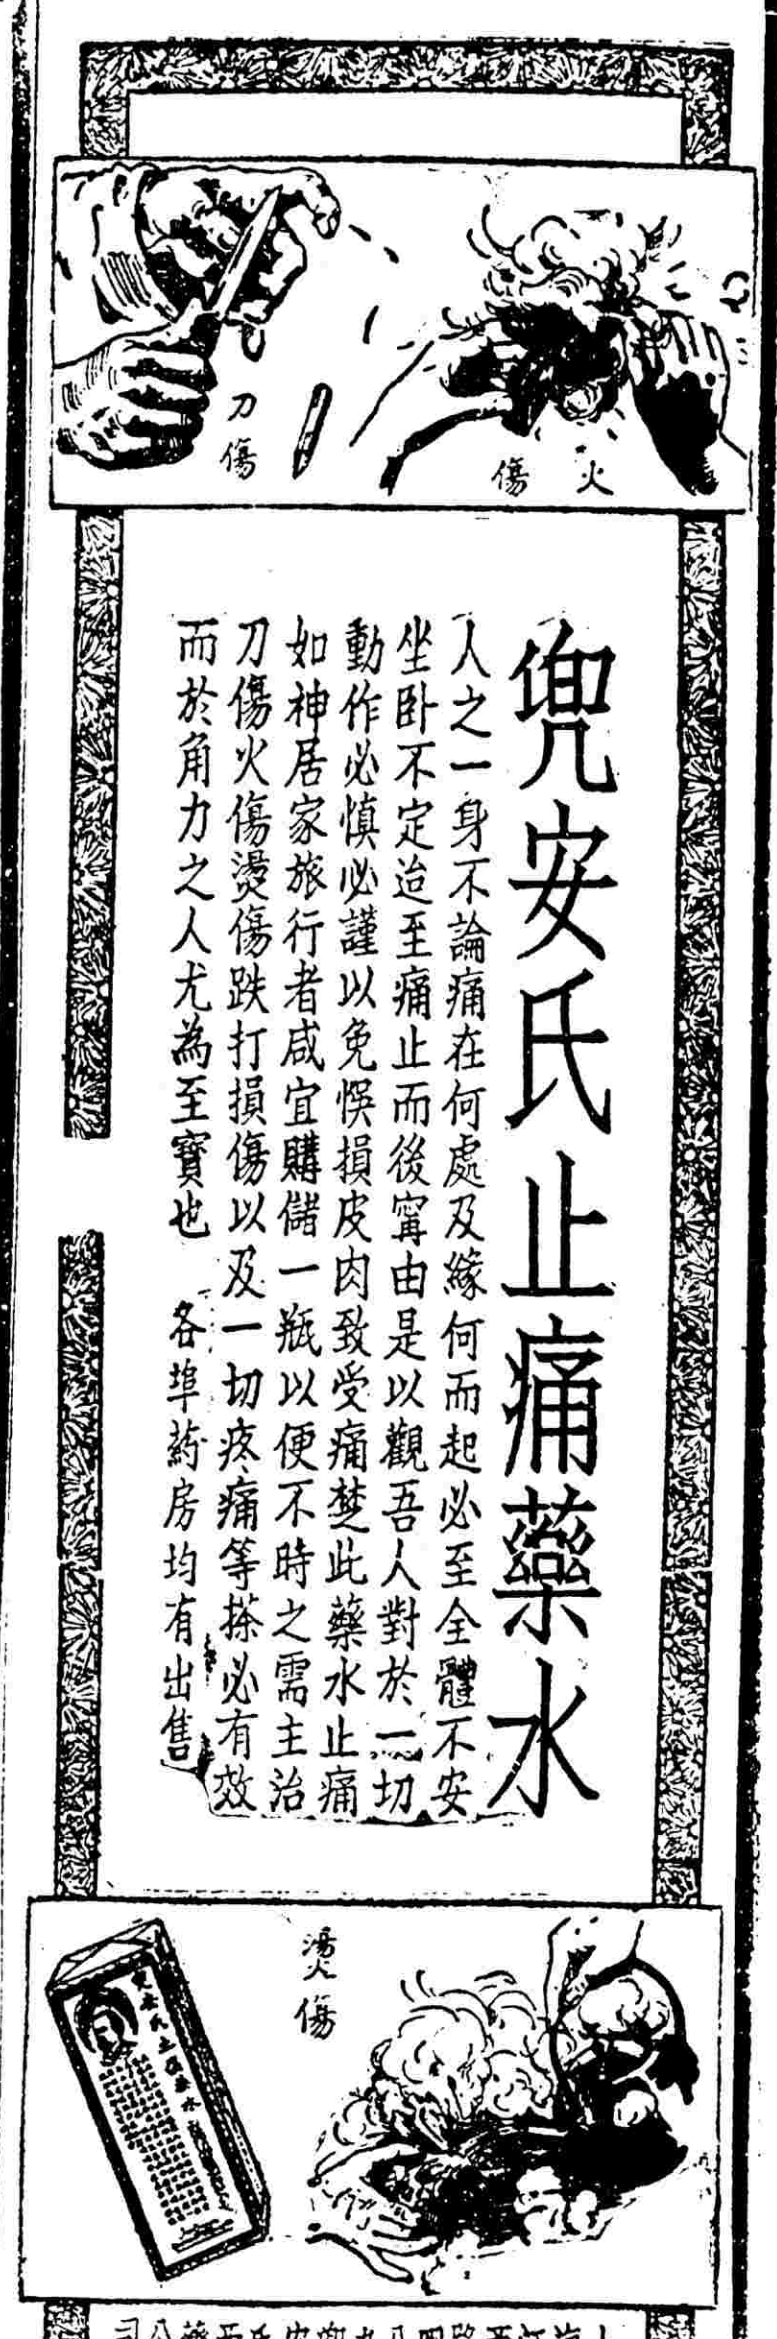 火傷
刀傷
兜安氏止痛藥水
人之一身不論痛在何處及緣何而起必至全體不安
坐卧不定迨至痛止而後寧由是以觀吾人對於一切
動作必慎必謹以免悞損皮肉致受痛楚此藥水止痛
如神居家旅行者咸宜購儲一瓶以便不時之需主治
刀傷火傷燙傷跌打損傷以及一切疼痛等搽必有效
而於角力之人尤為至寶也 各埠葯房均有出售
燙傷
兜安氏止痛藥水